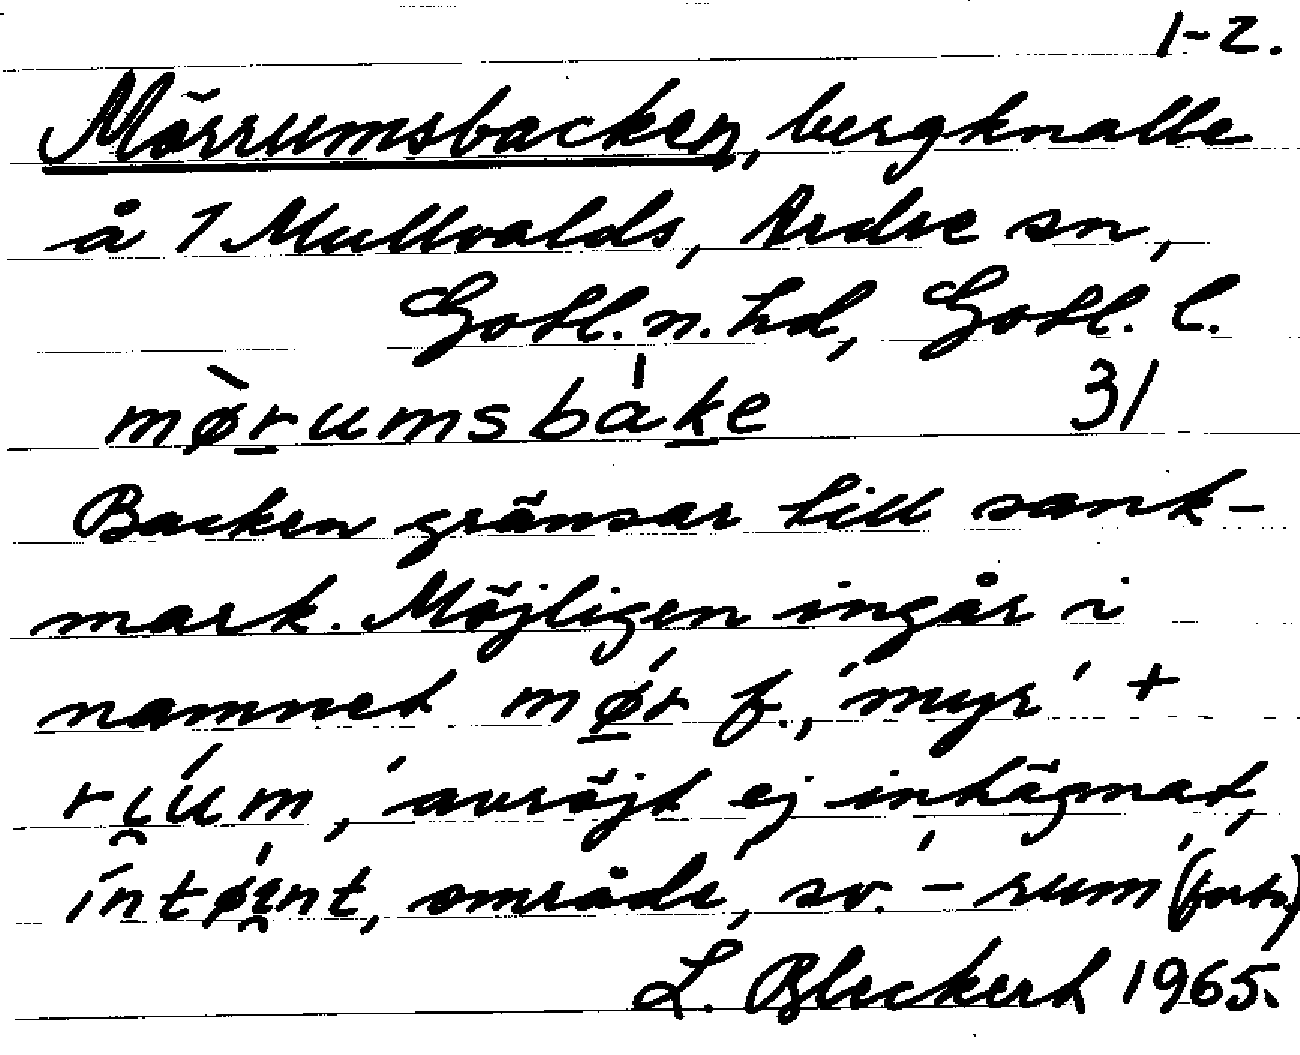 1-2.
Mörrumsbacken, bergknalle
å 1 Mullvalds, Ardre sn,
Gotl. n. hd, Gotl. l.
mø̀r̲umsbàk̲e 31
Backen gränsar till sank-
mark. Möjligen ingår i
namnet mǿ̲r f., 'myr' +
ri̯úm, 'avröjt ej inhägnat,
íntøi̯nt, område', sv. - rum (forts.)
L. Bleckert 1965.